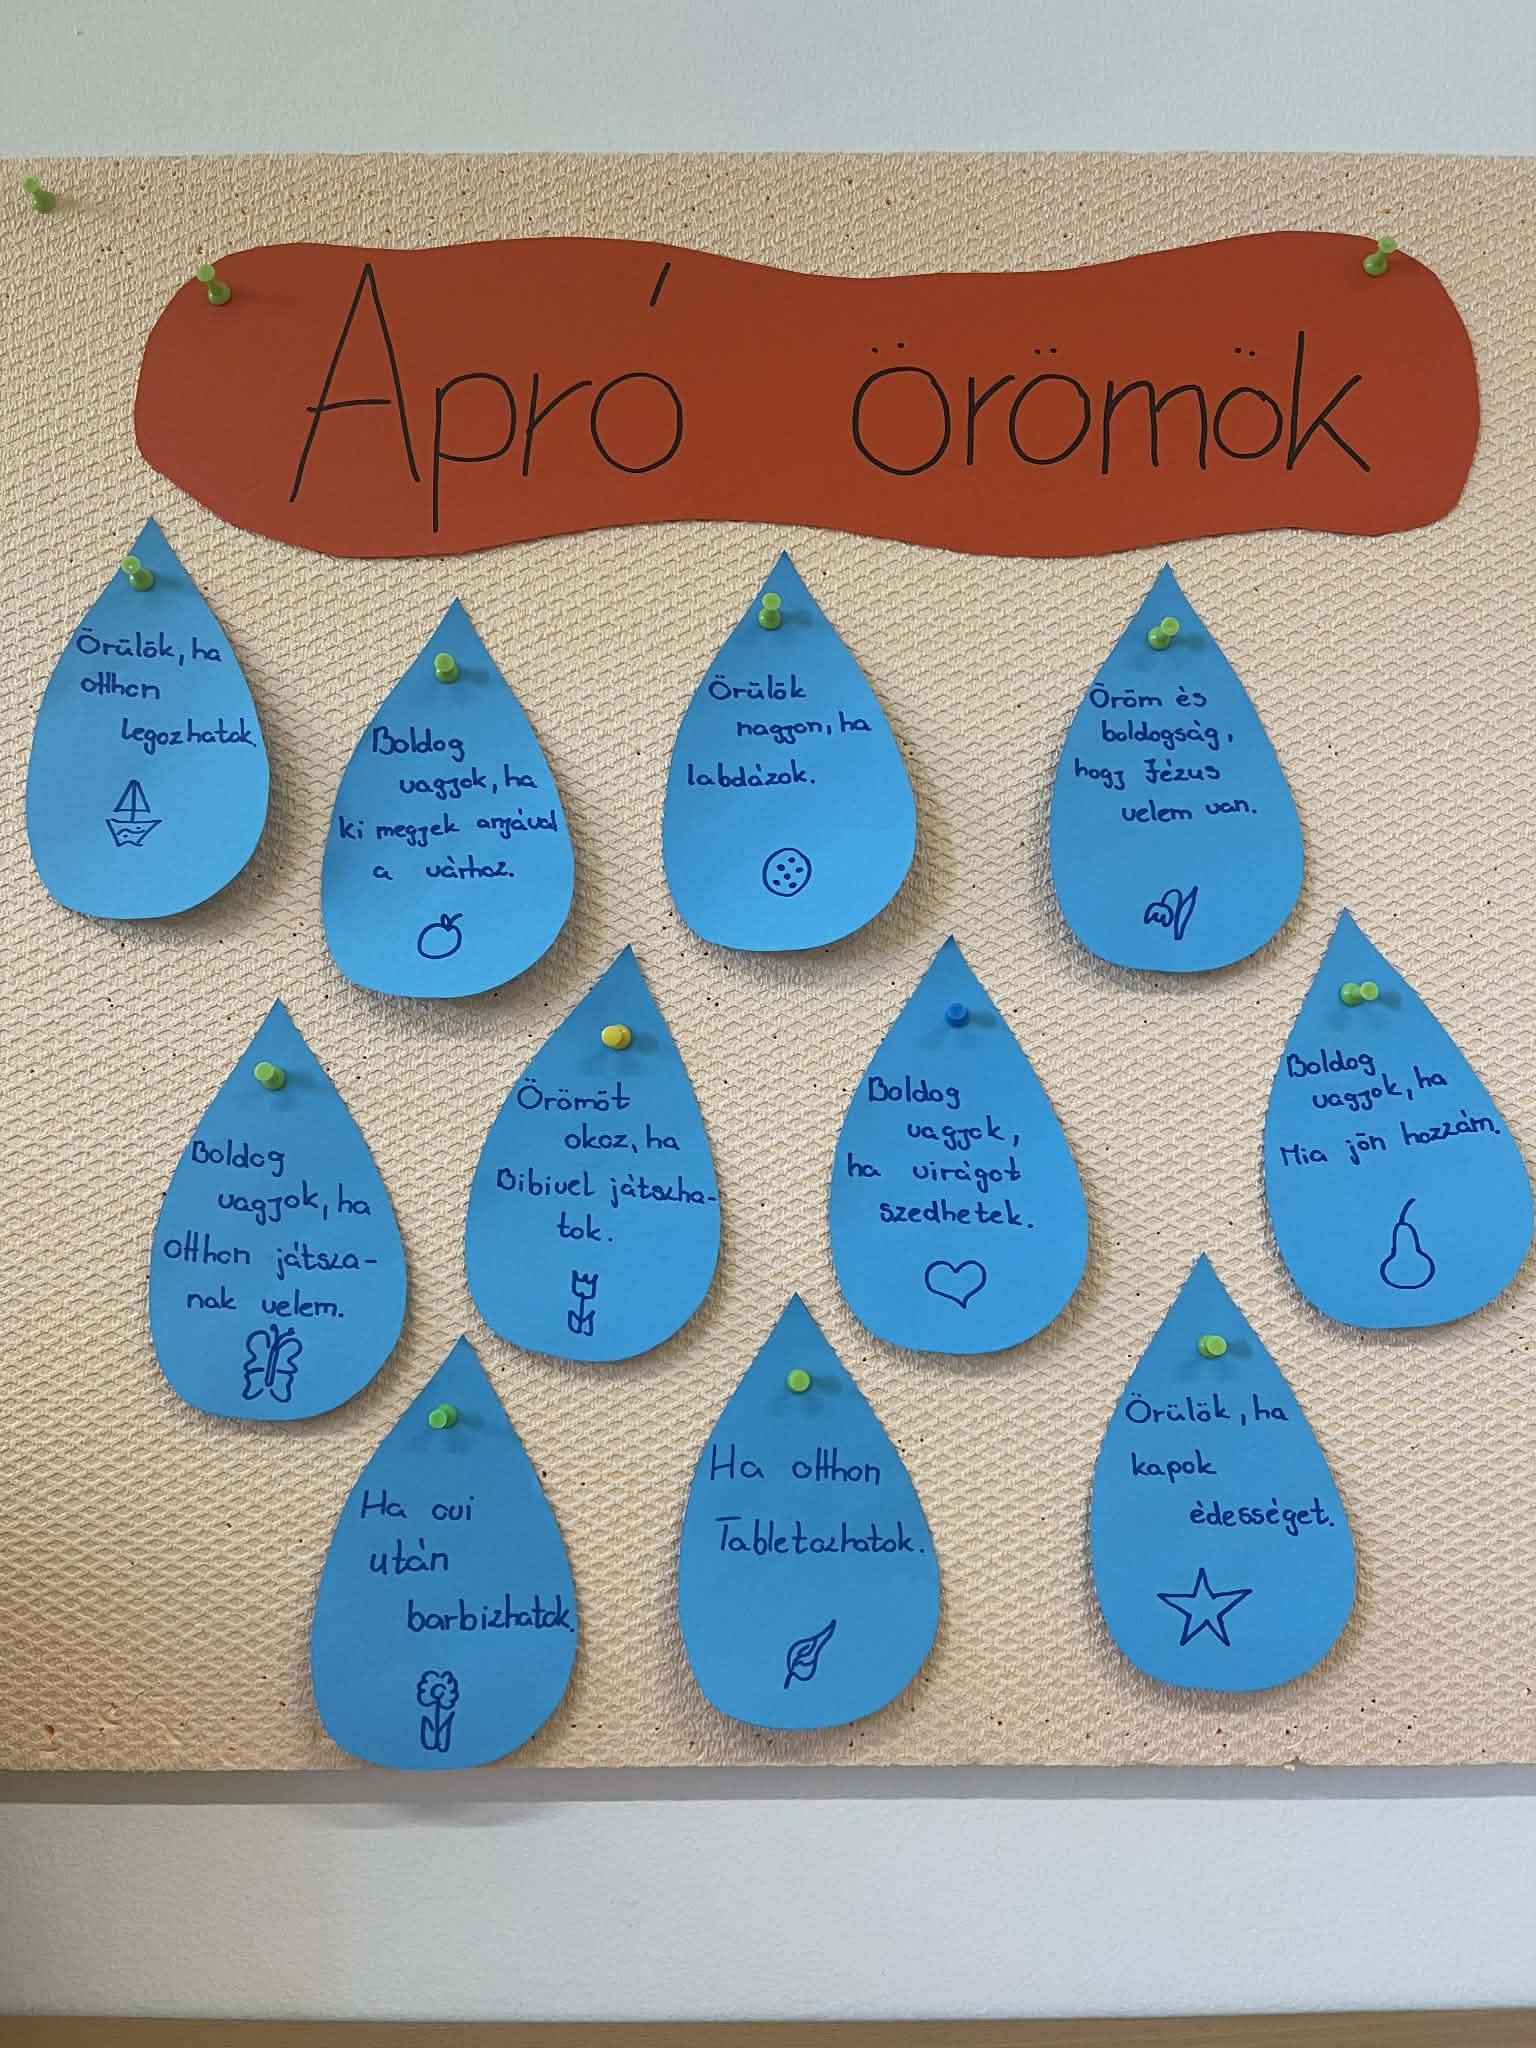 Apró örömök
Örülök, ha
otthon
legozhatok.
Boldog
vagyok, ha
ki megyek anyával
a várhoz.
Örülök
nagyon, ha
labdázok.
Öröm és
boldogság,
hogy Jézus
velem van.
Boldog
vagyok, ha
otthon játsza-
nak velem.
Örömöt
okoz, ha
Bibivel játszha-
tok.
Boldog
vagyok,
ha virágot
szedhetek.
Boldog
vagyok, ha
Mia jön hozzám.
Ha ovi
után
barbizhatok.
Ha otthon
Tabletozhatok.
Örülök, ha
kapok
édességet.